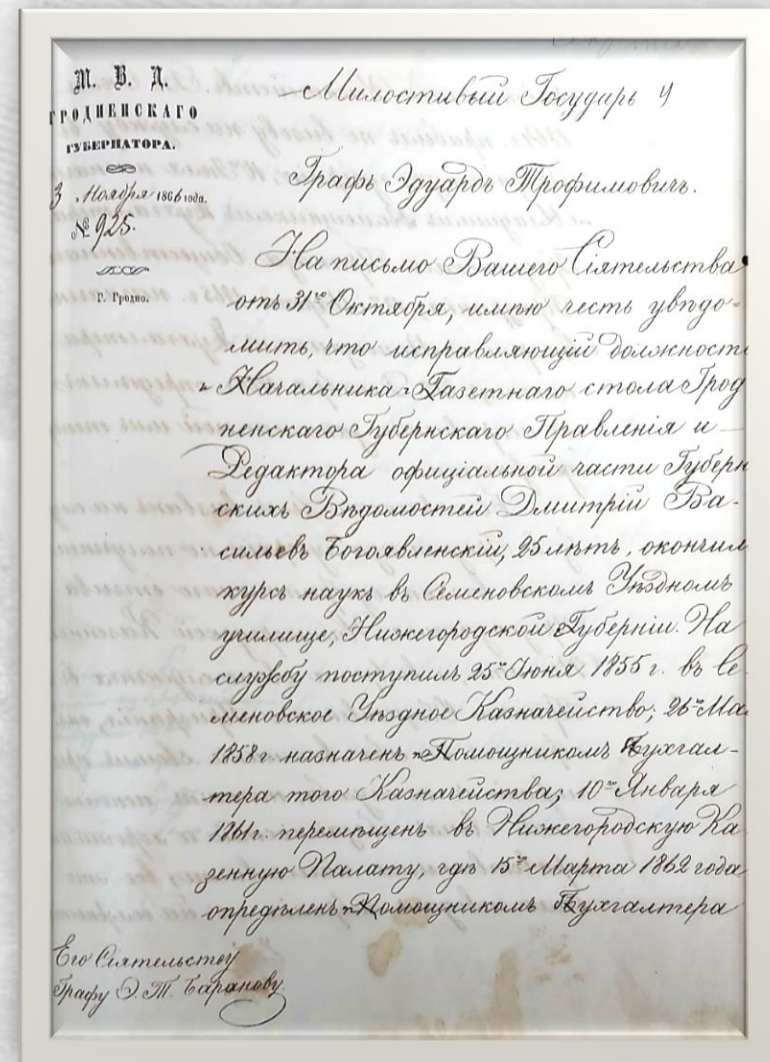 М. В. Д.
ГРОДНЕНСКАГО
ГУБЕРНАТОРА.
3 Ноября 1866 года.
№ 925.
Г. Гродно.
Милостивый Государь
Графъ Эдуардъ Трофимовичъ.
На письмо Вашего Сіятельства
отъ 31го Октября, имѣю честь увѣдо-
мить, что исправляющій должность
Начальника Газетнаго стола Грод
ненскаго Губернскаго Правленія и
Редактора официіальной части Губерн
скихъ Вѣдомостей Дмитрій Ва-
сильевъ Богоявленскій, 25 лѣтъ, окончил
курсъ наукъ въ Семеновскомъ Уѣздномъ
училище, Нижегородской Губерніи. На
службу поступилъ 25го Іюня 1855 г. въ Се
меновское Уѣздное Казначейство; 26го Ма
1858 г назначенъ Помощникомъ Бухгал-
тера того Казначейства; 10го Января
1861 г. перемѣщенъ въ Нижегородскую Ка
зенную Палату, гдѣ 15го Марта 1862 года
опредѣленъ Помощникомъ Бухгалтера
Его Сіятельству
Графу Э. Т. Баранову.